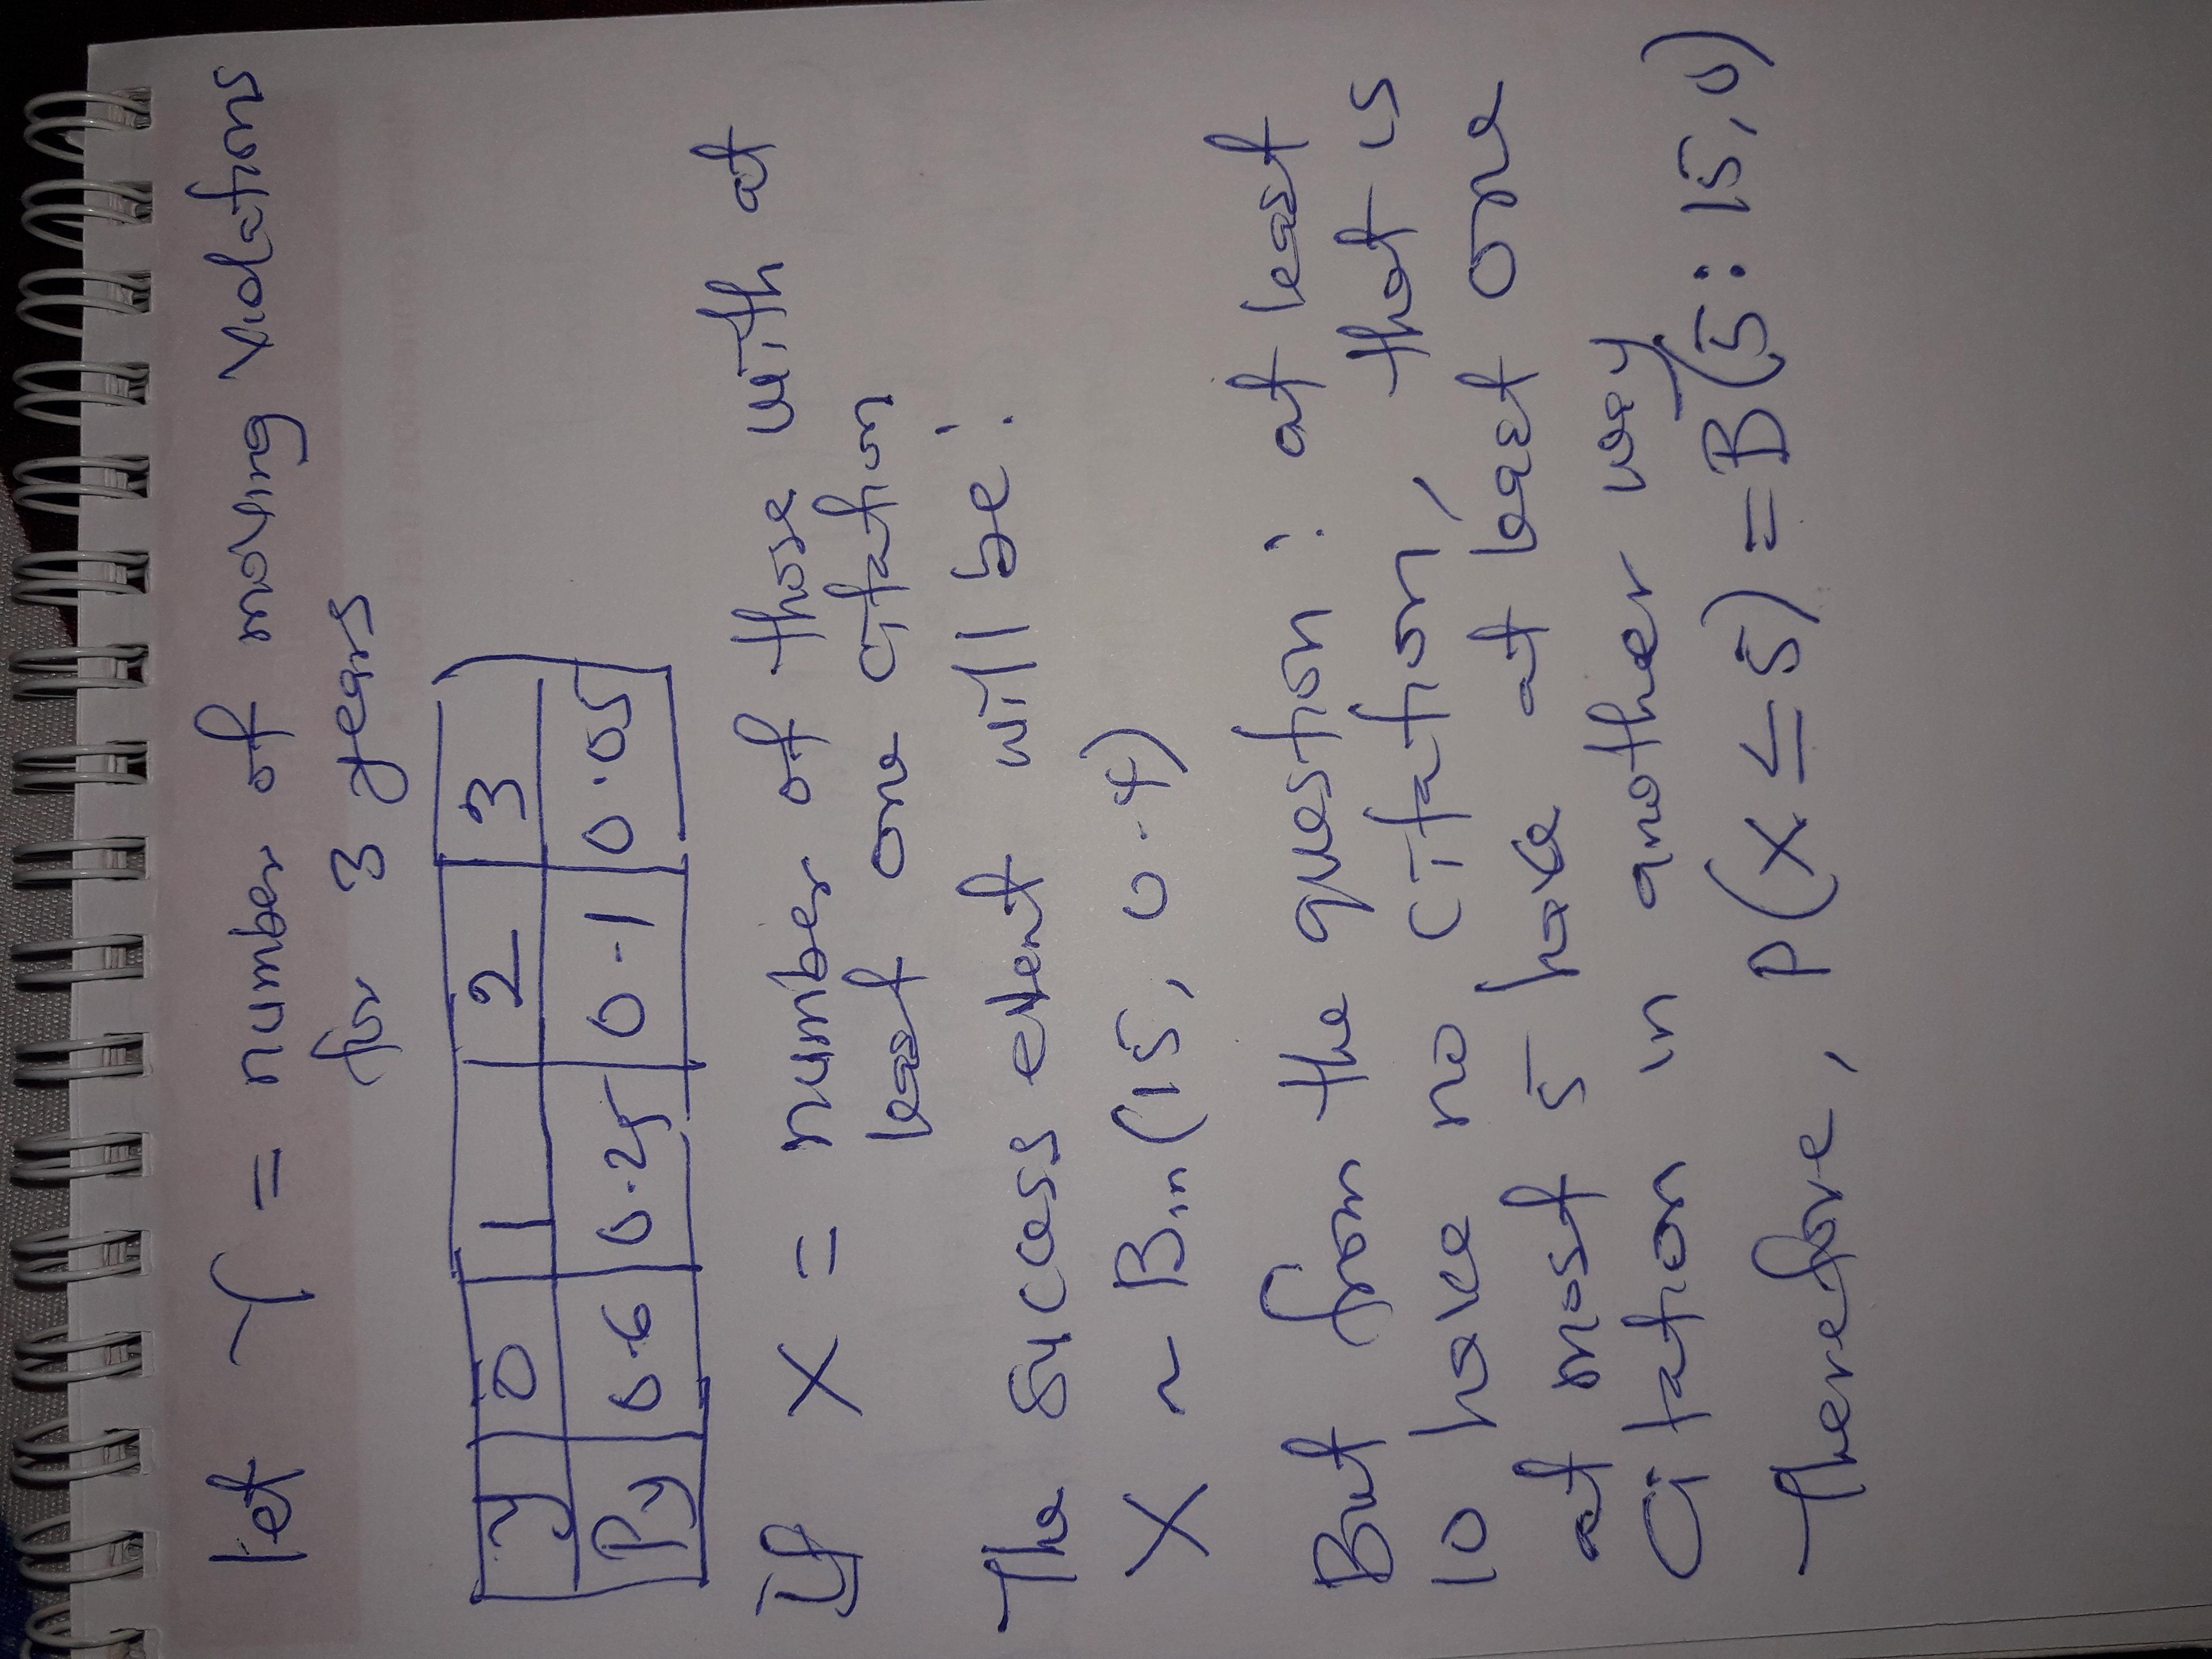 let Y = number of moving violations
for 3 years
y 0 1 2 3
Py 0.6 0.25 0.1 0.05
If X = number of those with at
least one citation
The sucess event will be:
X ~ Bin(15, 0.4)
But from the question: at least
10 have no citation, that is
at most 5 have at least one
Citation in another way
Therefore, P(X ≤ 5) = B(5:15,0)